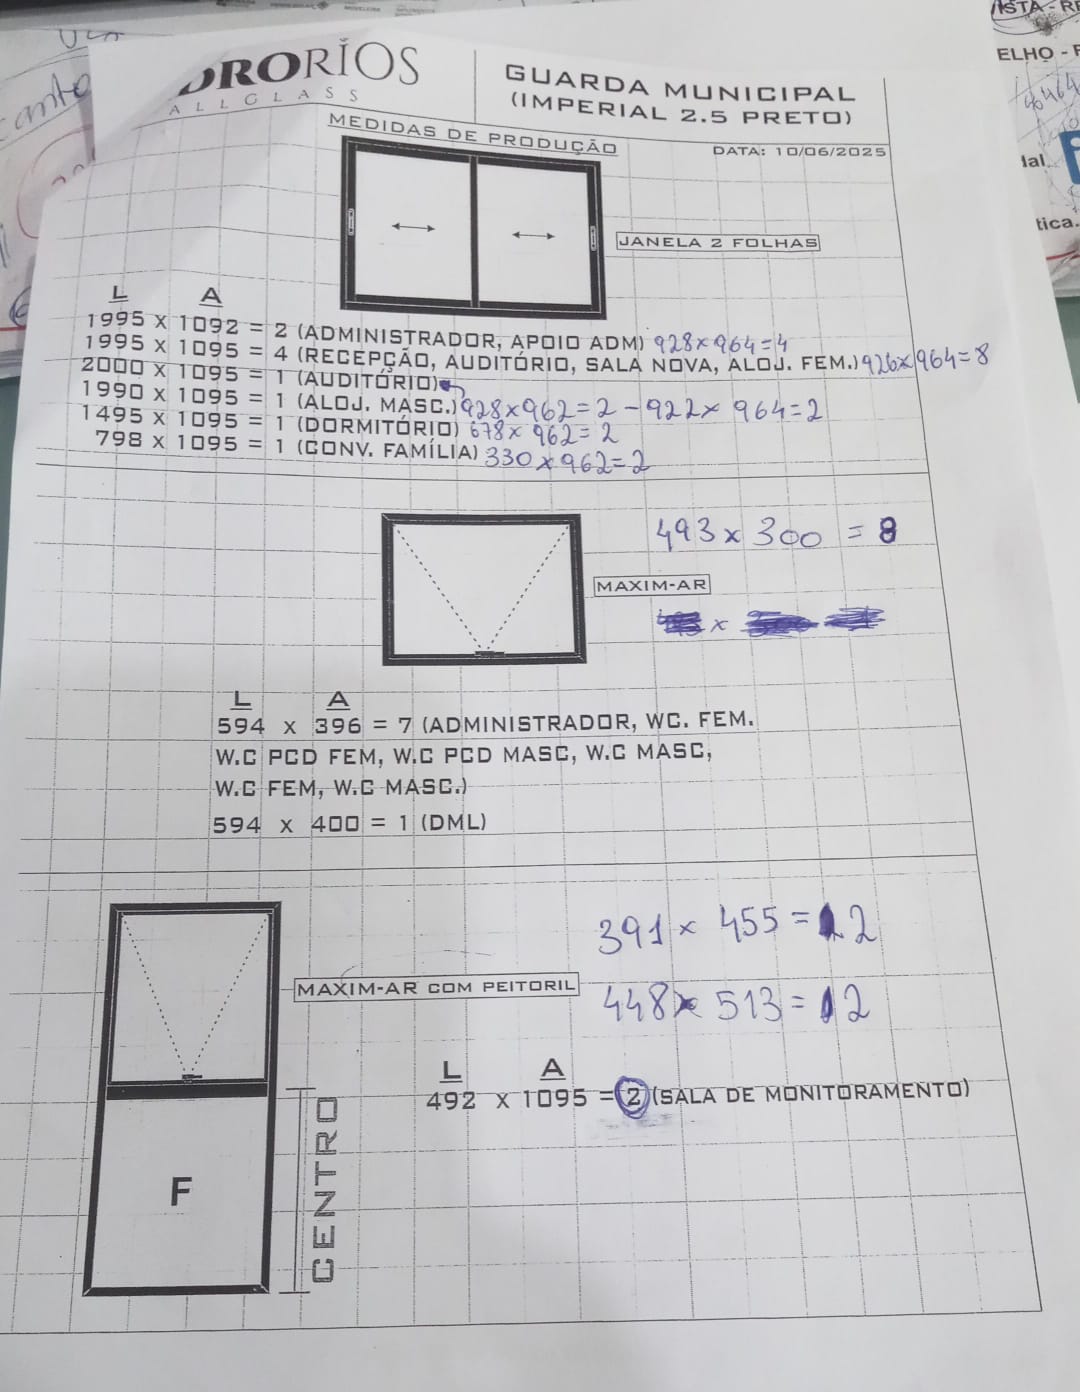 DRORIOS
ALLGLASS
GUARDA MUNICIPAL
(IMPERIAL 2.5 PRETO)
MEDIDAS DE PRODUÇÃO
DATA: 10/06/2025
JANELA 2 FOLHAS
L A
1995 X 1092 = 2 (ADMINISTRADOR, APOIO ADM) 928x964=4
1995 X 1095 = 4 (RECEPÇÃO, AUDITÓRIO, SALA NOVA, ALOJ. FEM.) 926x964=8
2000 X 1095 = 1 (AUDITÓRIO)
1990 X 1095 = 1 (ALOJ. MASC.) 928x962=2 - 922x964=2
1495 X 1095 = 1 (DORMITÓRIO) 678x962=2
798 X 1095 = 1 (CONV. FAMÍLIA) 330x962=2
493 x 300 = 8
MAXIM-AR
x
L A
594 X 396 = 7 (ADMINISTRADOR, WC. FEM.
W.C PCD FEM, W.C PCD MASC, W.C MASC,
W.C FEM, W.C MASC.)
594 X 400 = 1 (DML)
391 x 455 = 2
MAXIM-AR COM PEITORIL
448 x 513 = 2
L A
492 X 1095 = 2 (SALA DE MONITORAMENTO)
F
CENTRO
ISTA - RE
ELHO - F
ial
tica.